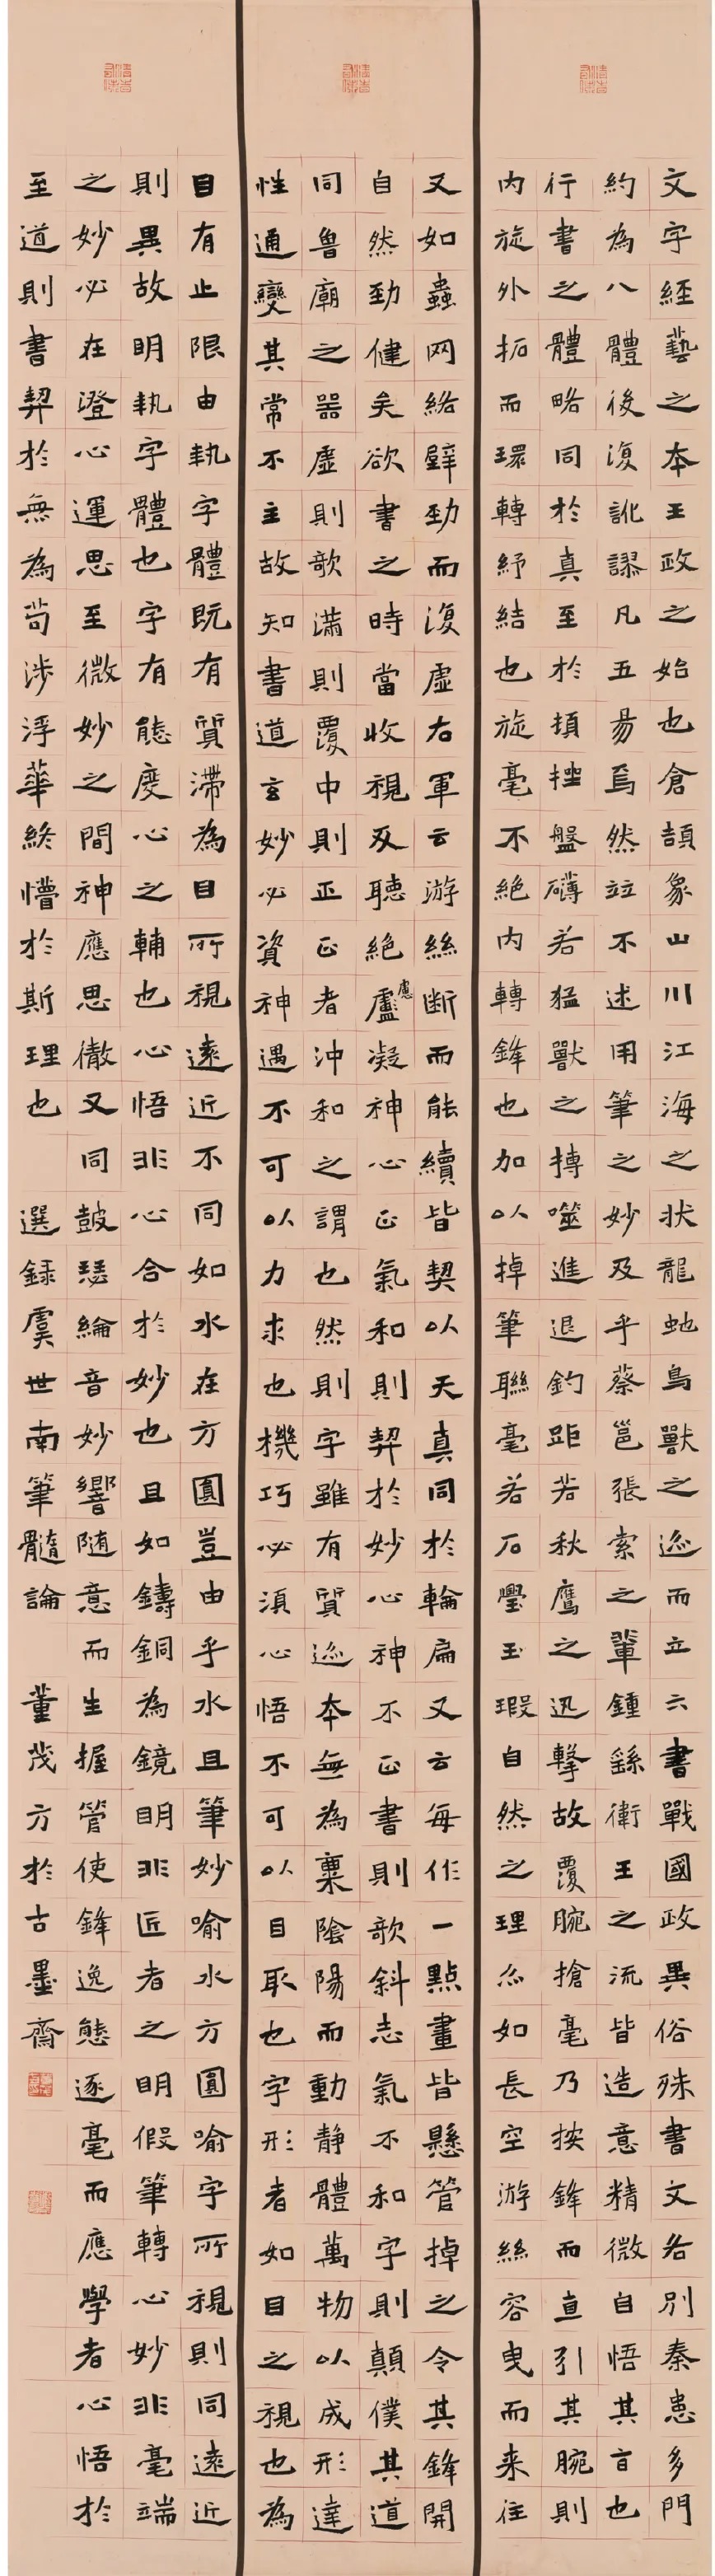 文字経藝之本王政之始也倉頡象山川江海之状龍虵鳥獸之迹而立六書戰國政異俗殊書文各別秦患多門
約為八體後復訛謬凡五易焉然並不述用筆之妙及乎蔡邕張索之輩鍾繇衛王之流皆造意精微自悟其旨也
行書之體略同於真至於頓挫盤礴若猛獸之搏噬進退釣距若秋鷹之迅擊故覆腕搶毫乃按鋒而直引其腕則
内旋外拓而環轉紓結也旋毫不絶内轉鋒也加以掉筆聯毫若石璺玉瑕自然之理亦如長空游絲容曳而来往
又如蟲网絡壁勁而復虛右軍云游絲断而能續皆契以天真同於輪扁又云每作一點畫皆懸管掉之令其鋒開
自然勁健矣欲書之時當收視反聽絶慮凝神心正氣和則契於妙心神不正書則歌斜志氣不和字則顛僕其道
同魯廟之器虛則歌滿則覆中則正正者沖和之謂也然則字雖有質迹本無為稟陰陽而動静體萬物以成形達
性通變其常不主故知書道玄妙必資神遇不可以力求也機巧必湏心悟不可以目取也字形者如目之視也為
目有止限由執字體既有質滯為目所視遠近不同如水在方圓豈由乎水且筆妙喻水方圓喻字所視則同遠近
則異故明執字體也字有態度心之輔也心悟非心合於妙也且如鑄銅為鏡明非匠者之明假筆轉心妙非毫端
之妙必在澄心運思至微妙之間神應思徹又同鼓瑟綸音妙響随意而生握管使鋒逸態逐毫而應學者心悟於
至道則書契於無為苟涉浮華終懵於斯理也 選録虞世南筆髓論 董茂方於古墨齋